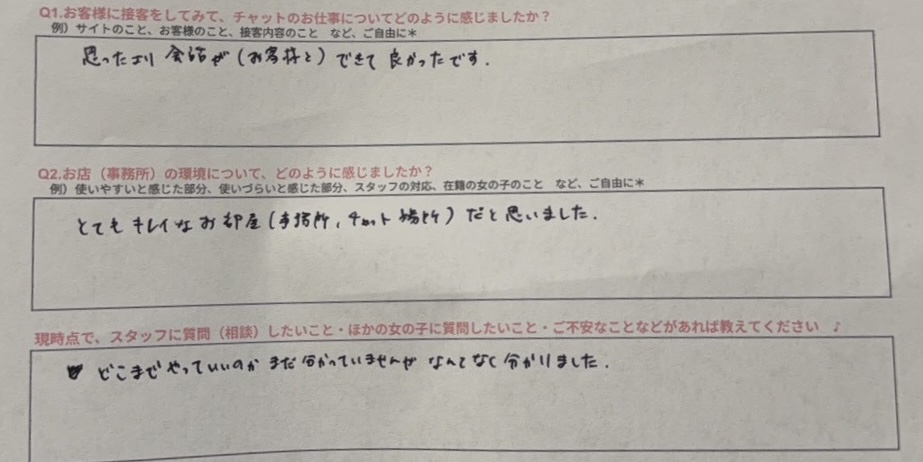 Q1.お客様に接客をしてみて、チャットのお仕事についてどのように感じましたか？
例）サイトのこと、お客様のこと、接客内容のこと　など、ご自由に＊
思ったより 会話が（お客様と）できて 良かったです.
Q2.お店（事務所）の環境について、どのように感じましたか？
例）使いやすいと感じた部分、使いづらいと感じた部分、スタッフの対応、在籍の女の子のこと　など、ご自由に＊
とても キレイな お部屋（事務所、チャット場所）だと思いました.
現時点で、スタッフに質問（相談）したいこと・ほかの女の子に質問したいこと・ご不安なことなどがあれば教えてください　♪
どこまで やっていいのか まだ 分かっていませんが なんとなく 分かりました.